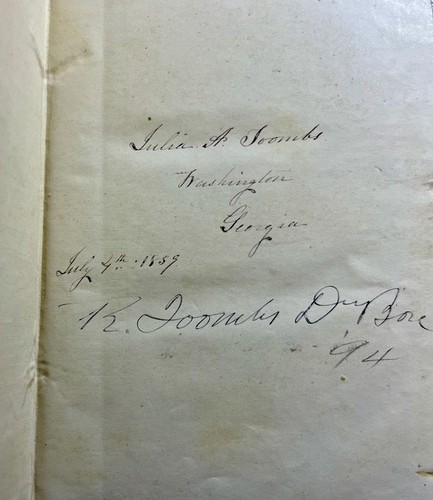 Julia A. Toombs
Washington
Georgia
July 4th 1859
R. Toombs DuBose
94